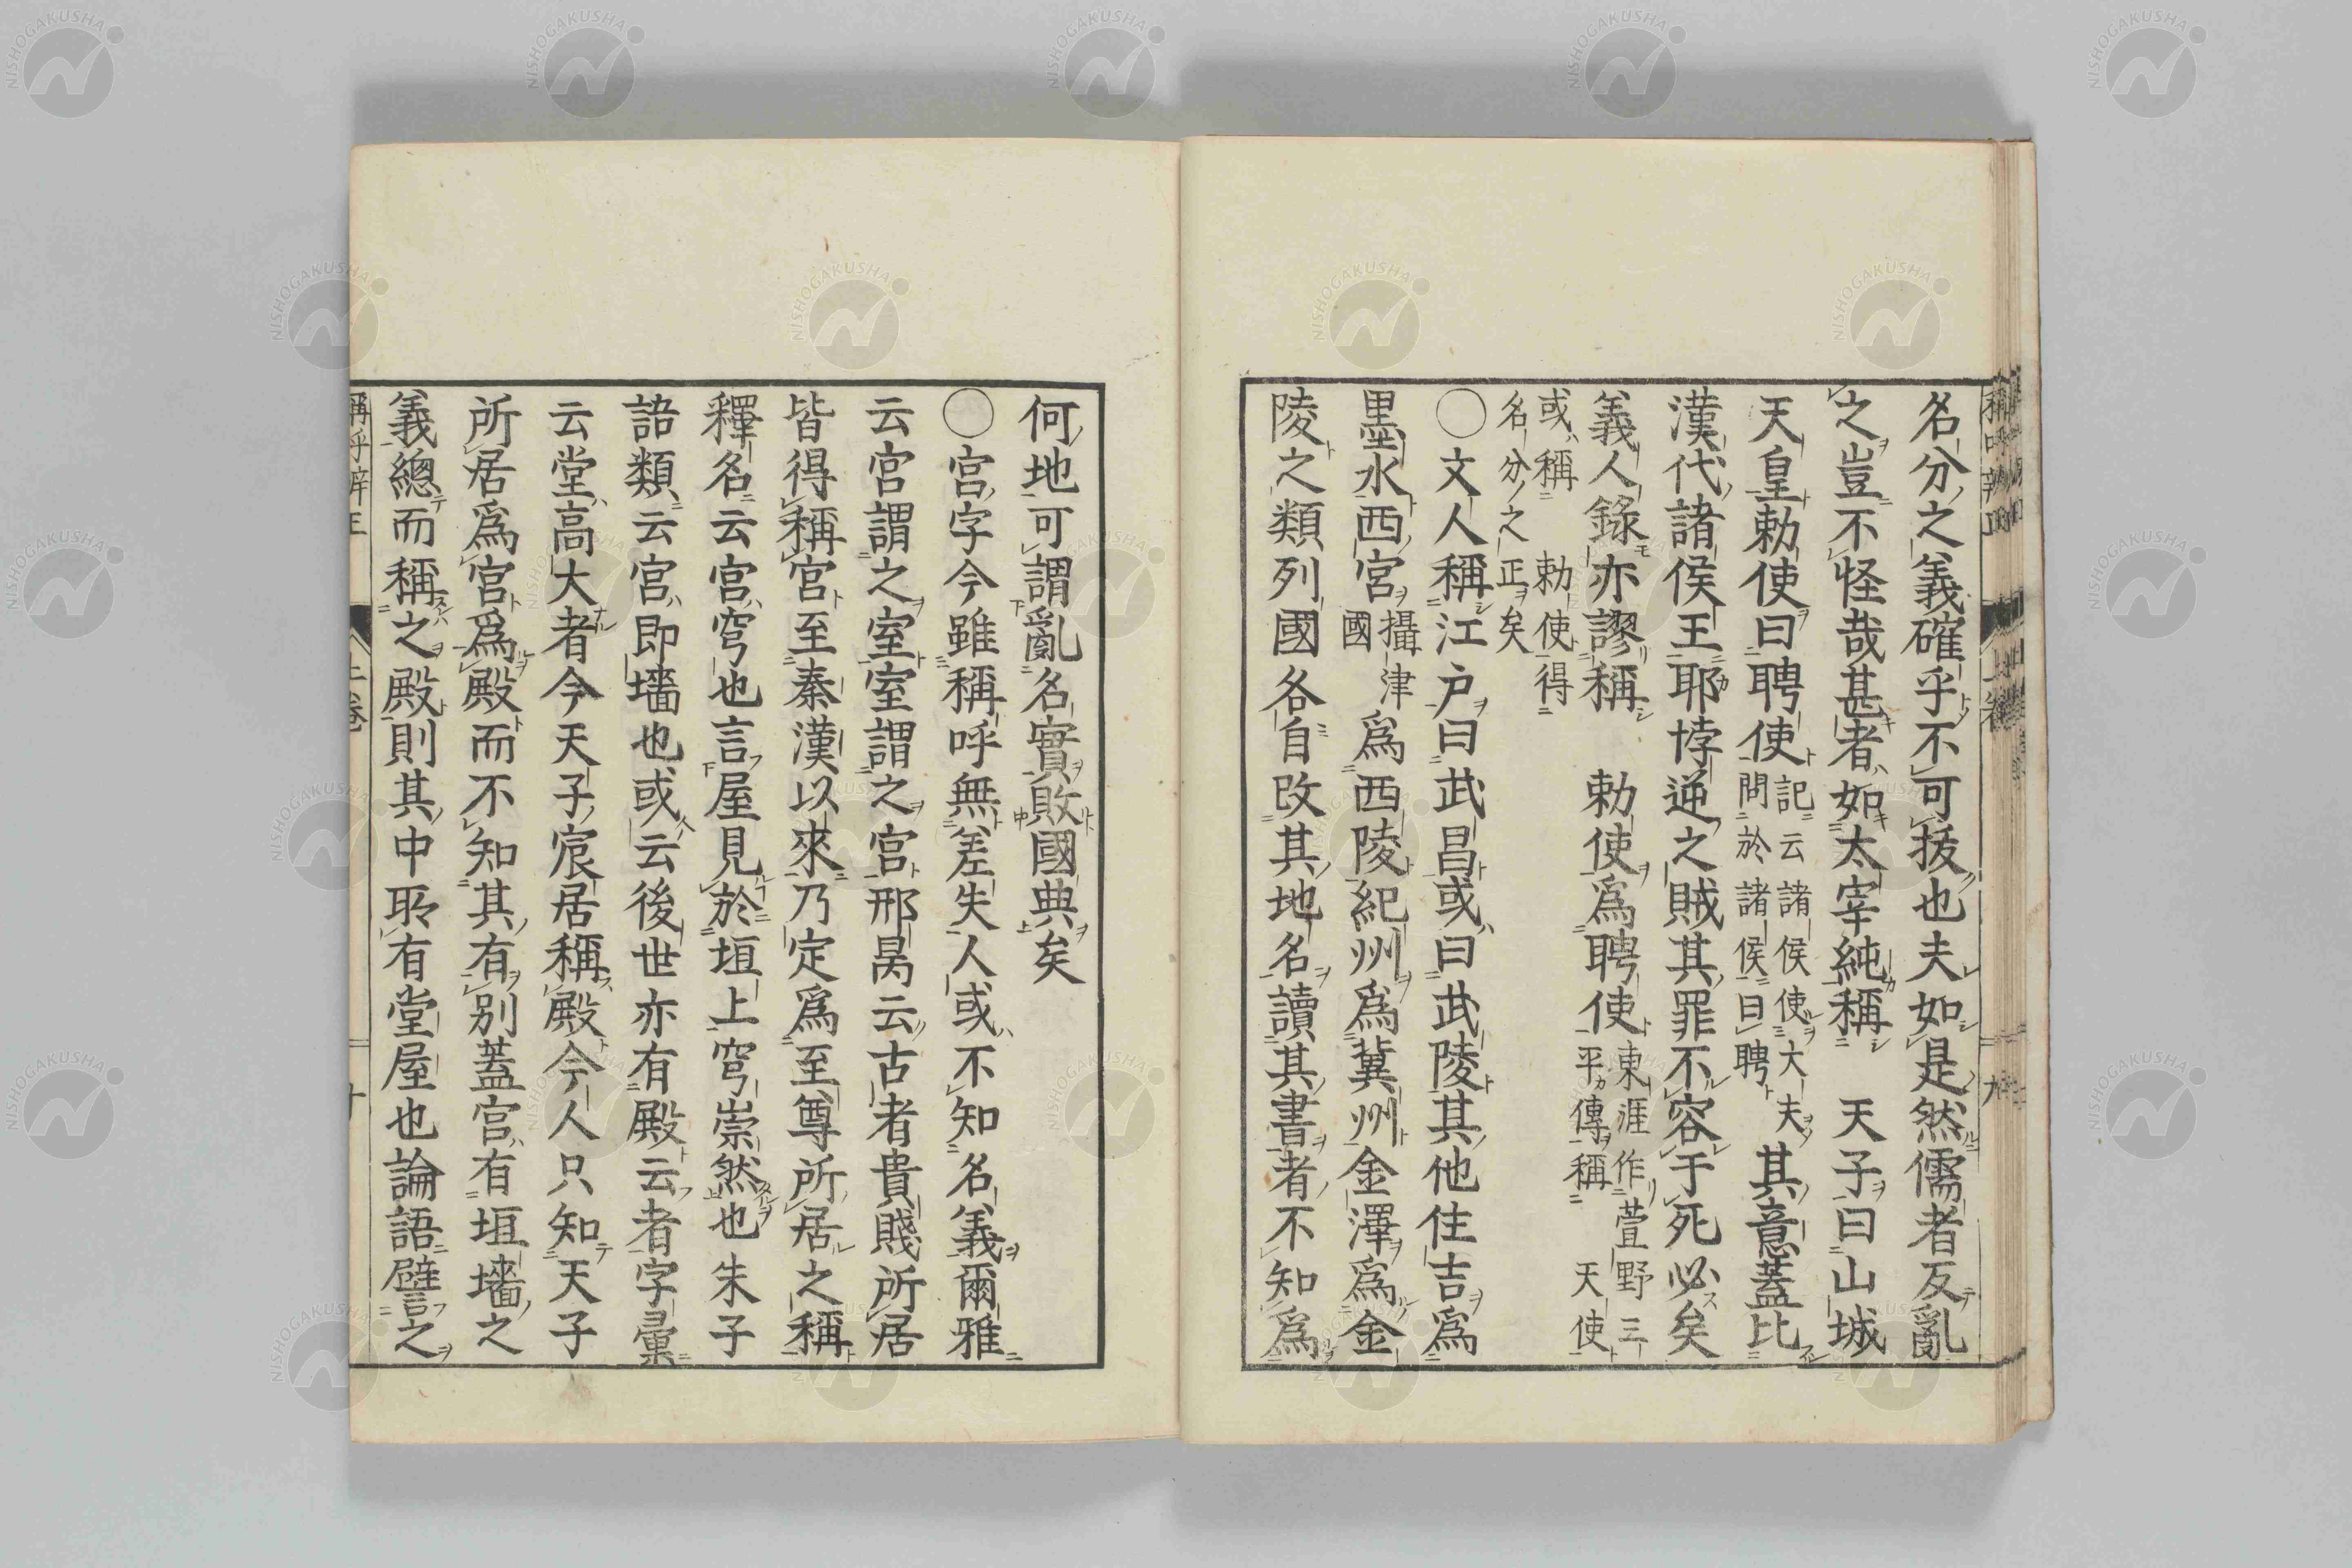 名分之義確乎不可拔也夫如是然儒者反亂
之豈不怪哉甚者如太宰純稱　天子曰山城
天皇勅使曰聘使記云諸侯使大夫問於諸侯曰聘其意蓋比
漢代諸侯王耶悖逆之賊其罪不容于死必矣
義人錄亦謬稱　勅使爲聘使東涯作萱野三平傳稱　天使
或稱　勅使得名分之正矣
〇文人稱江戶曰武昌或曰武陵其他住吉爲
墨水西宮攝津國爲西陵紀州爲冀州金澤爲金
陵之類列國各自改其地名讀其書者不知爲
何地可謂亂名實敗國典矣
〇宮字今雖稱呼無差失人或不知名義爾雅
云宮謂之室室謂之宮邢昺云古者貴賤所居
皆得稱宮至秦漢以來乃定爲至尊所居之稱
釋名云宮穹也言屋見於垣上穹崇然也朱子
語類云宮即墻也或云後世亦有殿云者字彙
云堂高大者今天子宸居稱殿今人只知天子
所居爲宮爲殿而不知其有別蓋宮有垣墻之
義總而稱之殿則其中所有堂屋也論語譬之
稱呼辨正　上卷　十
NISHOGAKUSHA